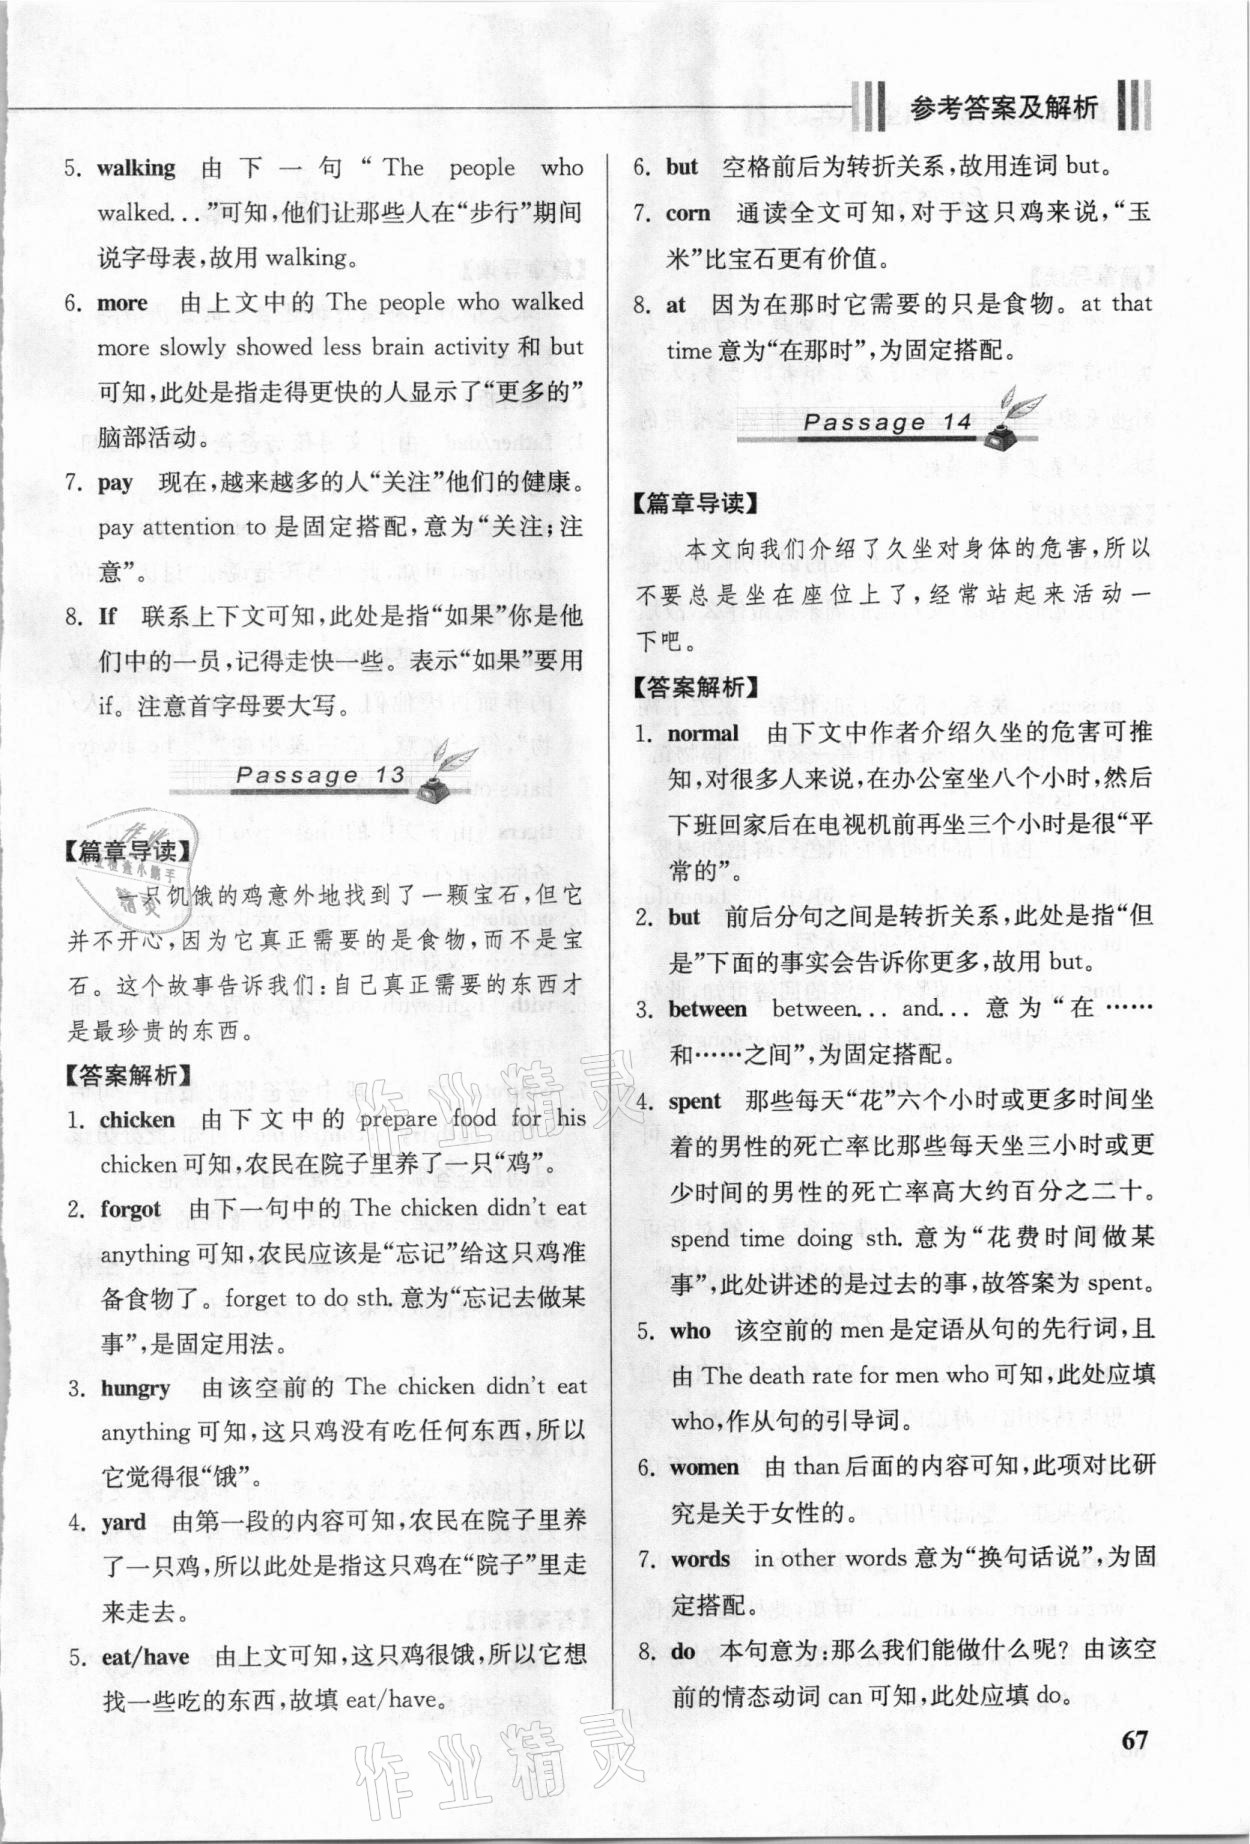 参考答案及解析
5. walking 由下一句“The people who
walked...”可知,他们让那些人在“步行”期间
说字母表,故用 walking。
6. more 由上文中的 The people who walked
more slowly showed less brain activity 和 but
可知,此处是指走得更快的人显示了“更多的”
脑部活动。
7. pay 现在,越来越多的人“关注”他们的健康。
pay attention to 是固定搭配,意为“关注;注
意”。
8. If 联系上下文可知,此处是指“如果”你是他
们中的一员,记得走快一些。表示“如果”要用
if。注意首字母要大写。
Passage 13
【篇章导读】
一只饥饿的鸡意外地找到了一颗宝石,但它
并不开心,因为它真正需要的是食物,而不是宝
石。这个故事告诉我们:自己真正需要的东西才
是最珍贵的东西。
【答案解析】
1. chicken 由下文中的 prepare food for his
chicken 可知,农民在院子里养了一只“鸡”。
2. forgot 由下一句中的 The chicken didn't eat
anything 可知,农民应该是“忘记”给这只鸡准
备食物了。forget to do sth. 意为“忘记去做某
事”,是固定用法。
3. hungry 由该空前的 The chicken didn't eat
anything 可知,这只鸡没有吃任何东西,所以
它觉得很“饿”。
4. yard 由第一段的内容可知,农民在院子里养
了一只鸡,所以此处是指这只鸡在“院子”里走
来走去。
5. eat/have 由上文可知,这只鸡很饿,所以它想
找一些吃的东西,故填 eat/have。
6. but 空格前后为转折关系,故用连词 but。
7. corn 通读全文可知,对于这只鸡来说,“玉
米”比宝石更有价值。
8. at 因为在那时它需要的只是食物。at that
time 意为“在那时”,为固定搭配。
Passage 14
【篇章导读】
本文向我们介绍了久坐对身体的危害,所以
不要总是坐在座位上了,经常站起来活动一
下吧。
【答案解析】
1. normal 由下文中作者介绍久坐的危害可推
知,对很多人来说,在办公室坐八个小时,然后
下班回家后在电视机前再坐三个小时是很“平
常的”。
2. but 前后分句之间是转折关系,此处是指“但
是”下面的事实会告诉你更多,故用 but。
3. between between... and... 意为“在……
和……之间”,为固定搭配。
4. spent 那些每天“花”六个小时或更多时间坐
着的男性的死亡率比那些每天坐三小时或更
少时间的男性的死亡率高大约百分之二十。
spend time doing sth. 意为“花费时间做某
事”,此处讲述的是过去的事,故答案为 spent。
5. who 该空前的 men 是定语从句的先行词,且
由 The death rate for men who 可知,此处应填
who,作从句的引导词。
6. women 由 than 后面的内容可知,此项对比研
究是关于女性的。
7. words in other words 意为“换句话说”,为固
定搭配。
8. do 本句意为:那么我们能做什么呢?由该空
前的情态动词 can 可知,此处应填 do。
67
作业精灵
作业精灵